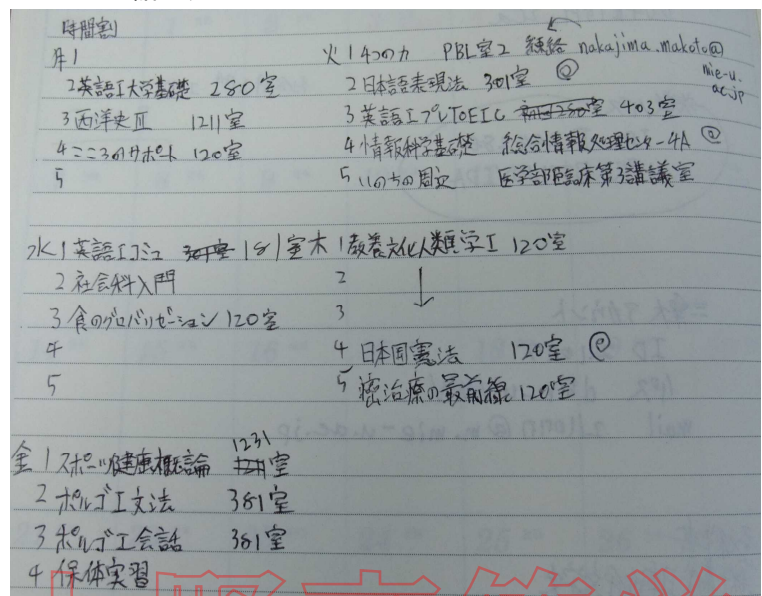 時間割
月1
2英語I大学基礎 280室
3西洋史Ⅲ 1211室
4こころのサポート 120室
5
火1 4つの力 PBL室2 連絡 nakajima.makoto@mie-u.ac.jp
2日本語表現法 301室 @
3英語IプレTOEIC 403室
4情報科学基礎 総合情報処理センター4A @
5いのちの周辺 医学部臨床第3講議室
水1英語Iコミュ 181室
2社会科入門
3食のグローバリゼーション 120室
4
5
木1教養文化人類学I 120室
2
3
4日本国憲法 120室 @
5癌治療の最前線 120室
金1スポーツ健康概論 1231室
2ポルゴI文法 381室
3ポルゴI会話 381室
4保体実習